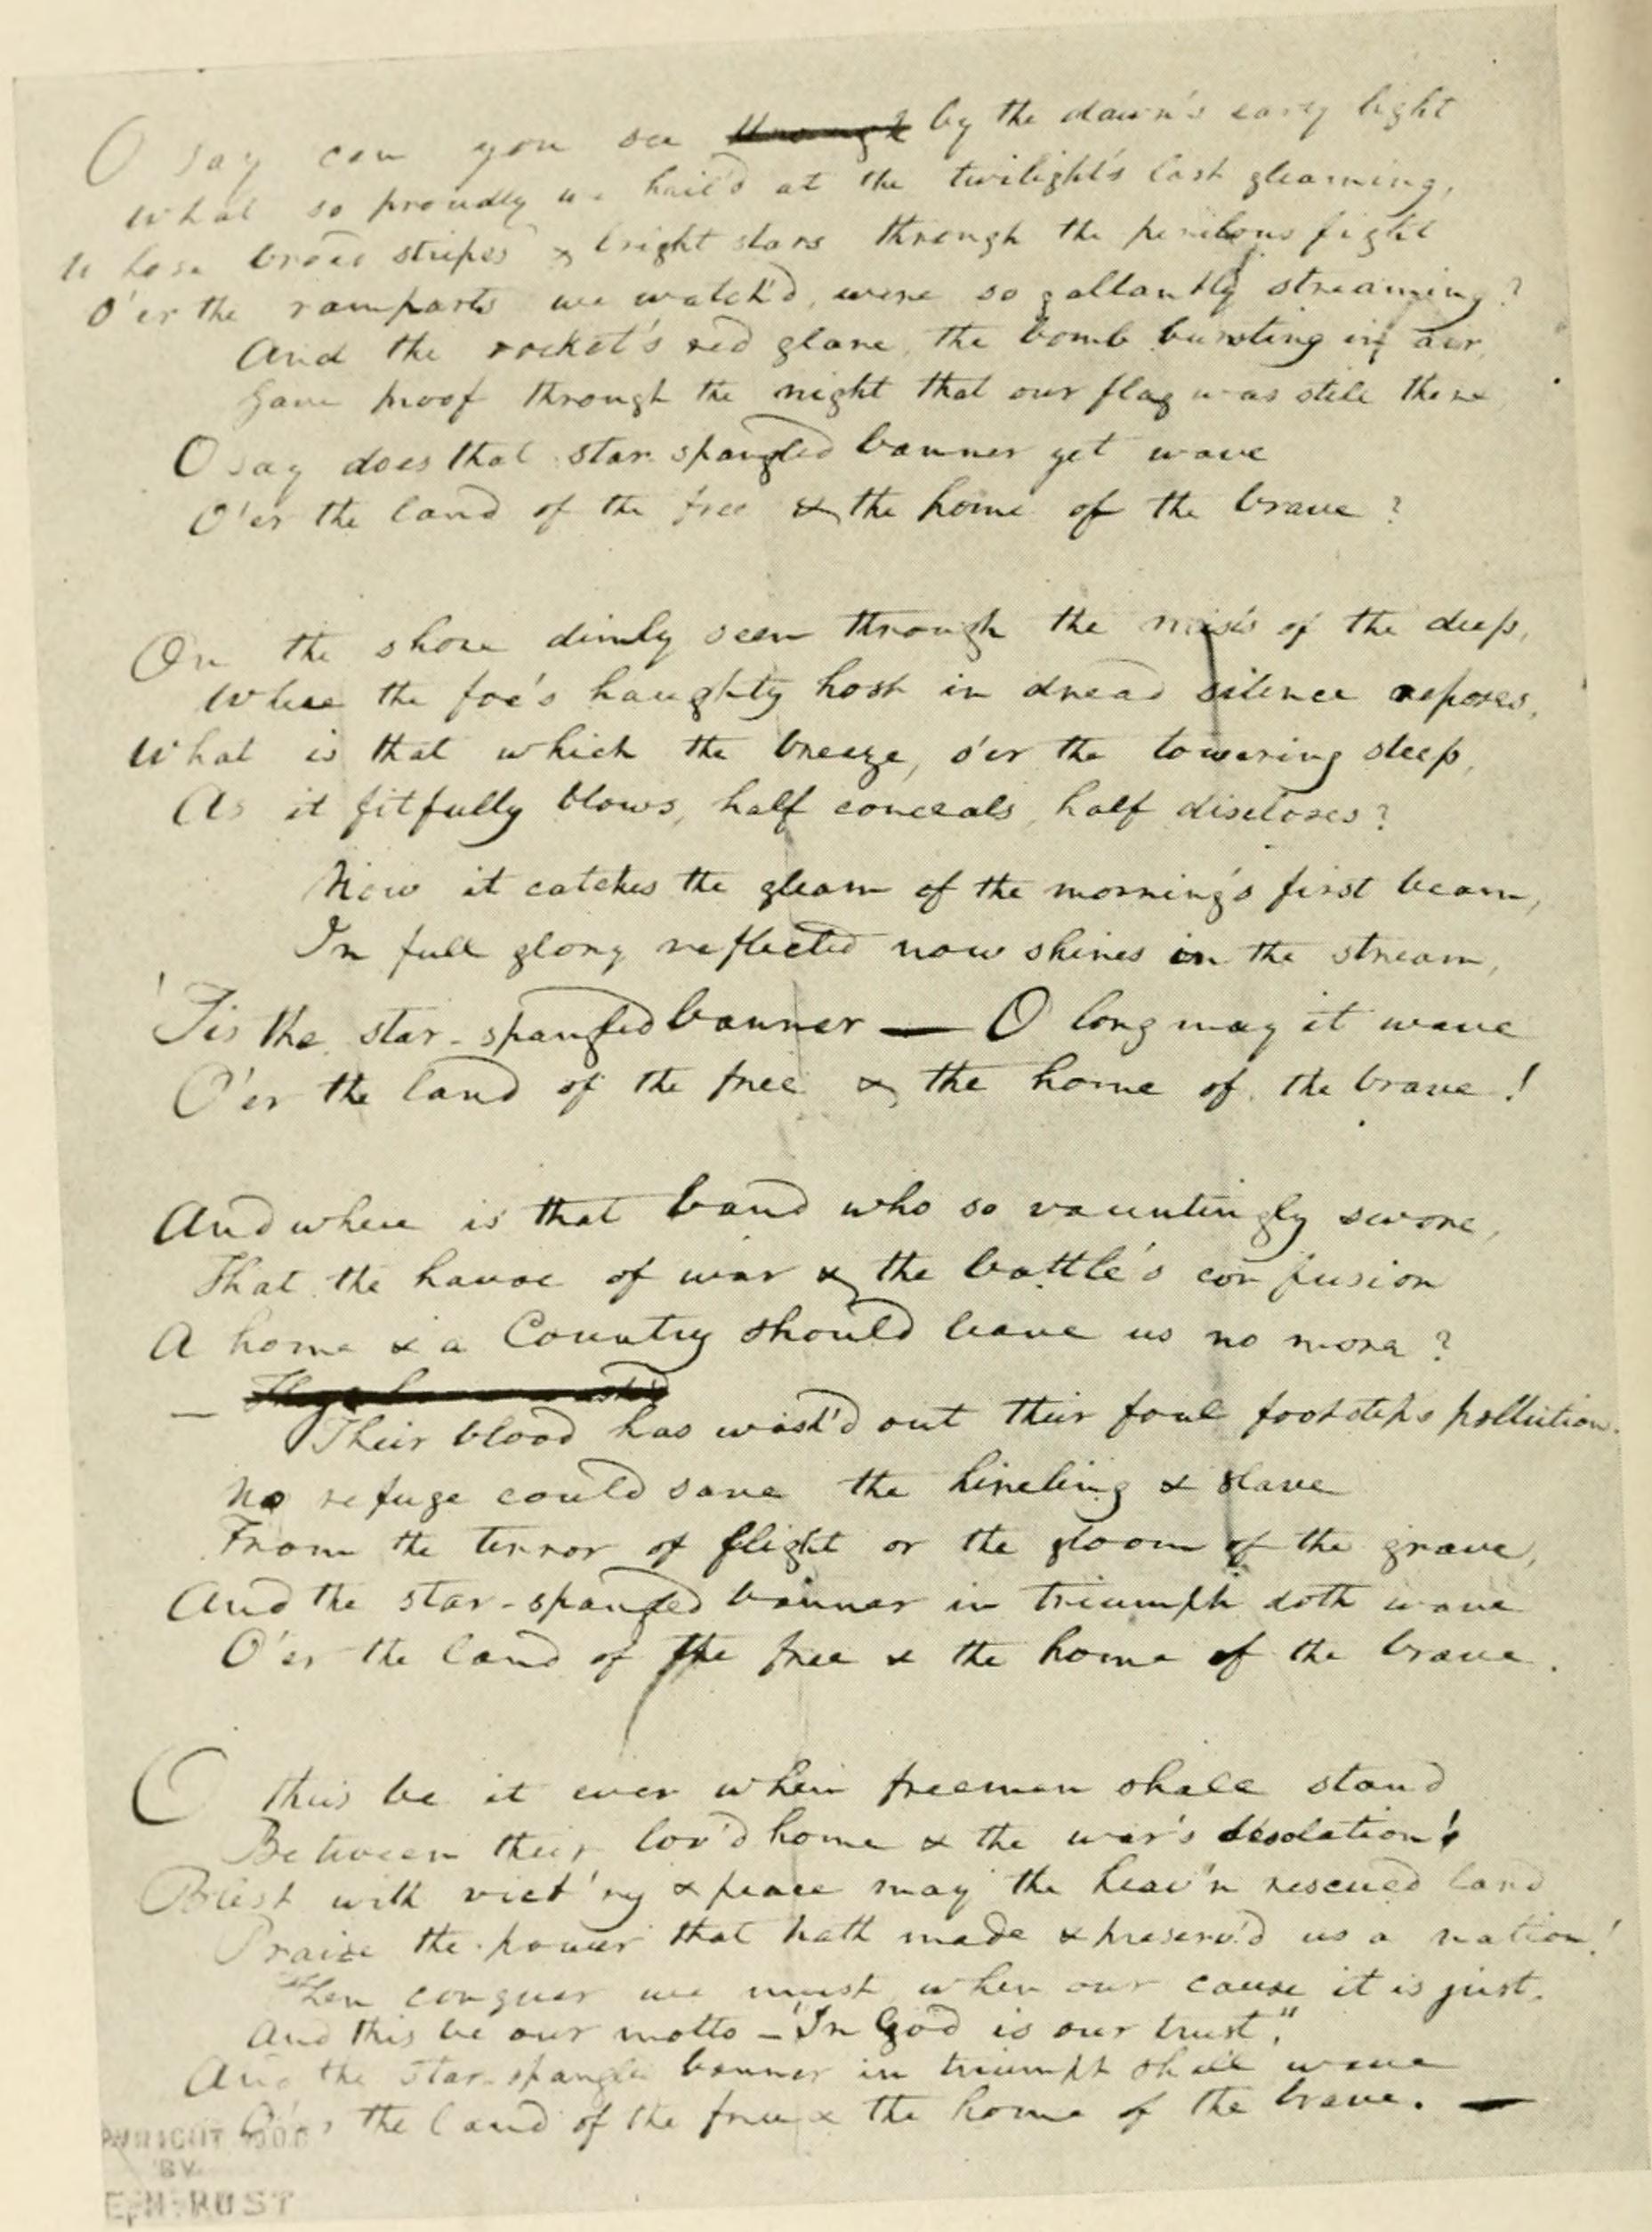 O say can you see ~~through~~ by the dawn's early light
What so proudly we hail'd at the twilight's last gleaming,
Whose broad stripes & bright stars through the perilous fight
O'er the ramparts we watch'd, were so gallantly streaming?
And the rocket's red glare, the bomb bursting in air,
Gave proof through the night that our flag was still there
O say does that star spangled banner yet wave
O'er the land of the free & the home of the brave?
On the shore dimly seen through the mists of the deep,
Where the foe's haughty host in dread silence reposes,
What is that which the breeze, o'er the towering steep,
As it fitfully blows, half conceals, half discloses?
Now it catches the gleam of the morning's first beam,
In full glory reflected now shines in the stream,
'Tis the star-spangled banner — O long may it wave
O'er the land of the free & the home of the brave!
And where is that band who so vauntingly swore,
That the havoc of war & the battle's confusion
A home & a Country should leave us no more?
—
Their blood has wash'd out their foul footsteps pollution.
No refuge could save the hireling & slave
From the terror of flight or the gloom of the grave,
And the star-spangled banner in triumph doth wave
O'er the land of the free & the home of the brave.
O thus be it ever when freemen shall stand
Between their lov'd home & the war's desolation!
Blest with vict'ry & peace may the heav'n rescued land
Praise the power that hath made & preserv'd us a nation!
Then conquer we must when our cause it is just,
And this be our motto — "In God is our trust,"
And the star-spangled banner in triumph shall wave
O'er the land of the free & the home of the brave. —
BY